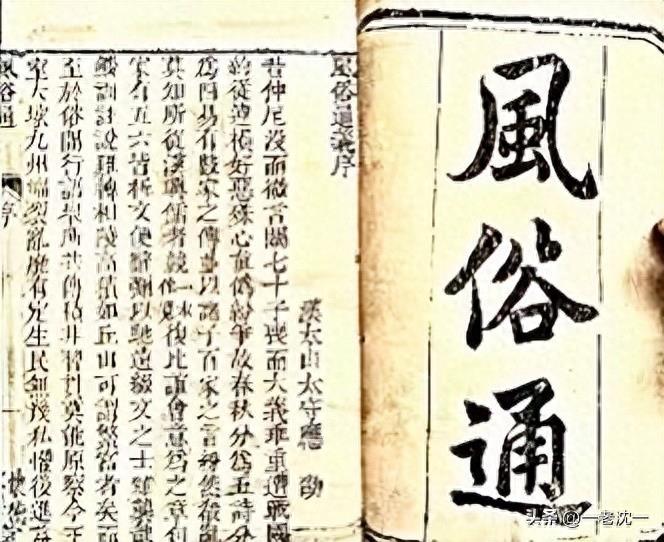 風俗通
風俗通義序
漢太山太守應 劭
昔仲尼沒而微言闕七十子喪而大義乖重遭戰國
約從連橫好惡殊心真偽紛爭故春秋分為五詩分
為四易有數家之傳並以諸子百家之言紛然殽亂
莫知所從漢興儒者競復比誼會意為之章句
家有五六皆析文便辭彌以馳遠綴文之士雜襲龍
鱗訓註說難轉相陵高積如丘山可謂繁富者矣而
至於俗間行語眾所共傳積非習貫莫能原察今王
室大壞九州幅裂亂靡有定生民無幾私懼後進益
風俗通 序
头条 @一老沈一